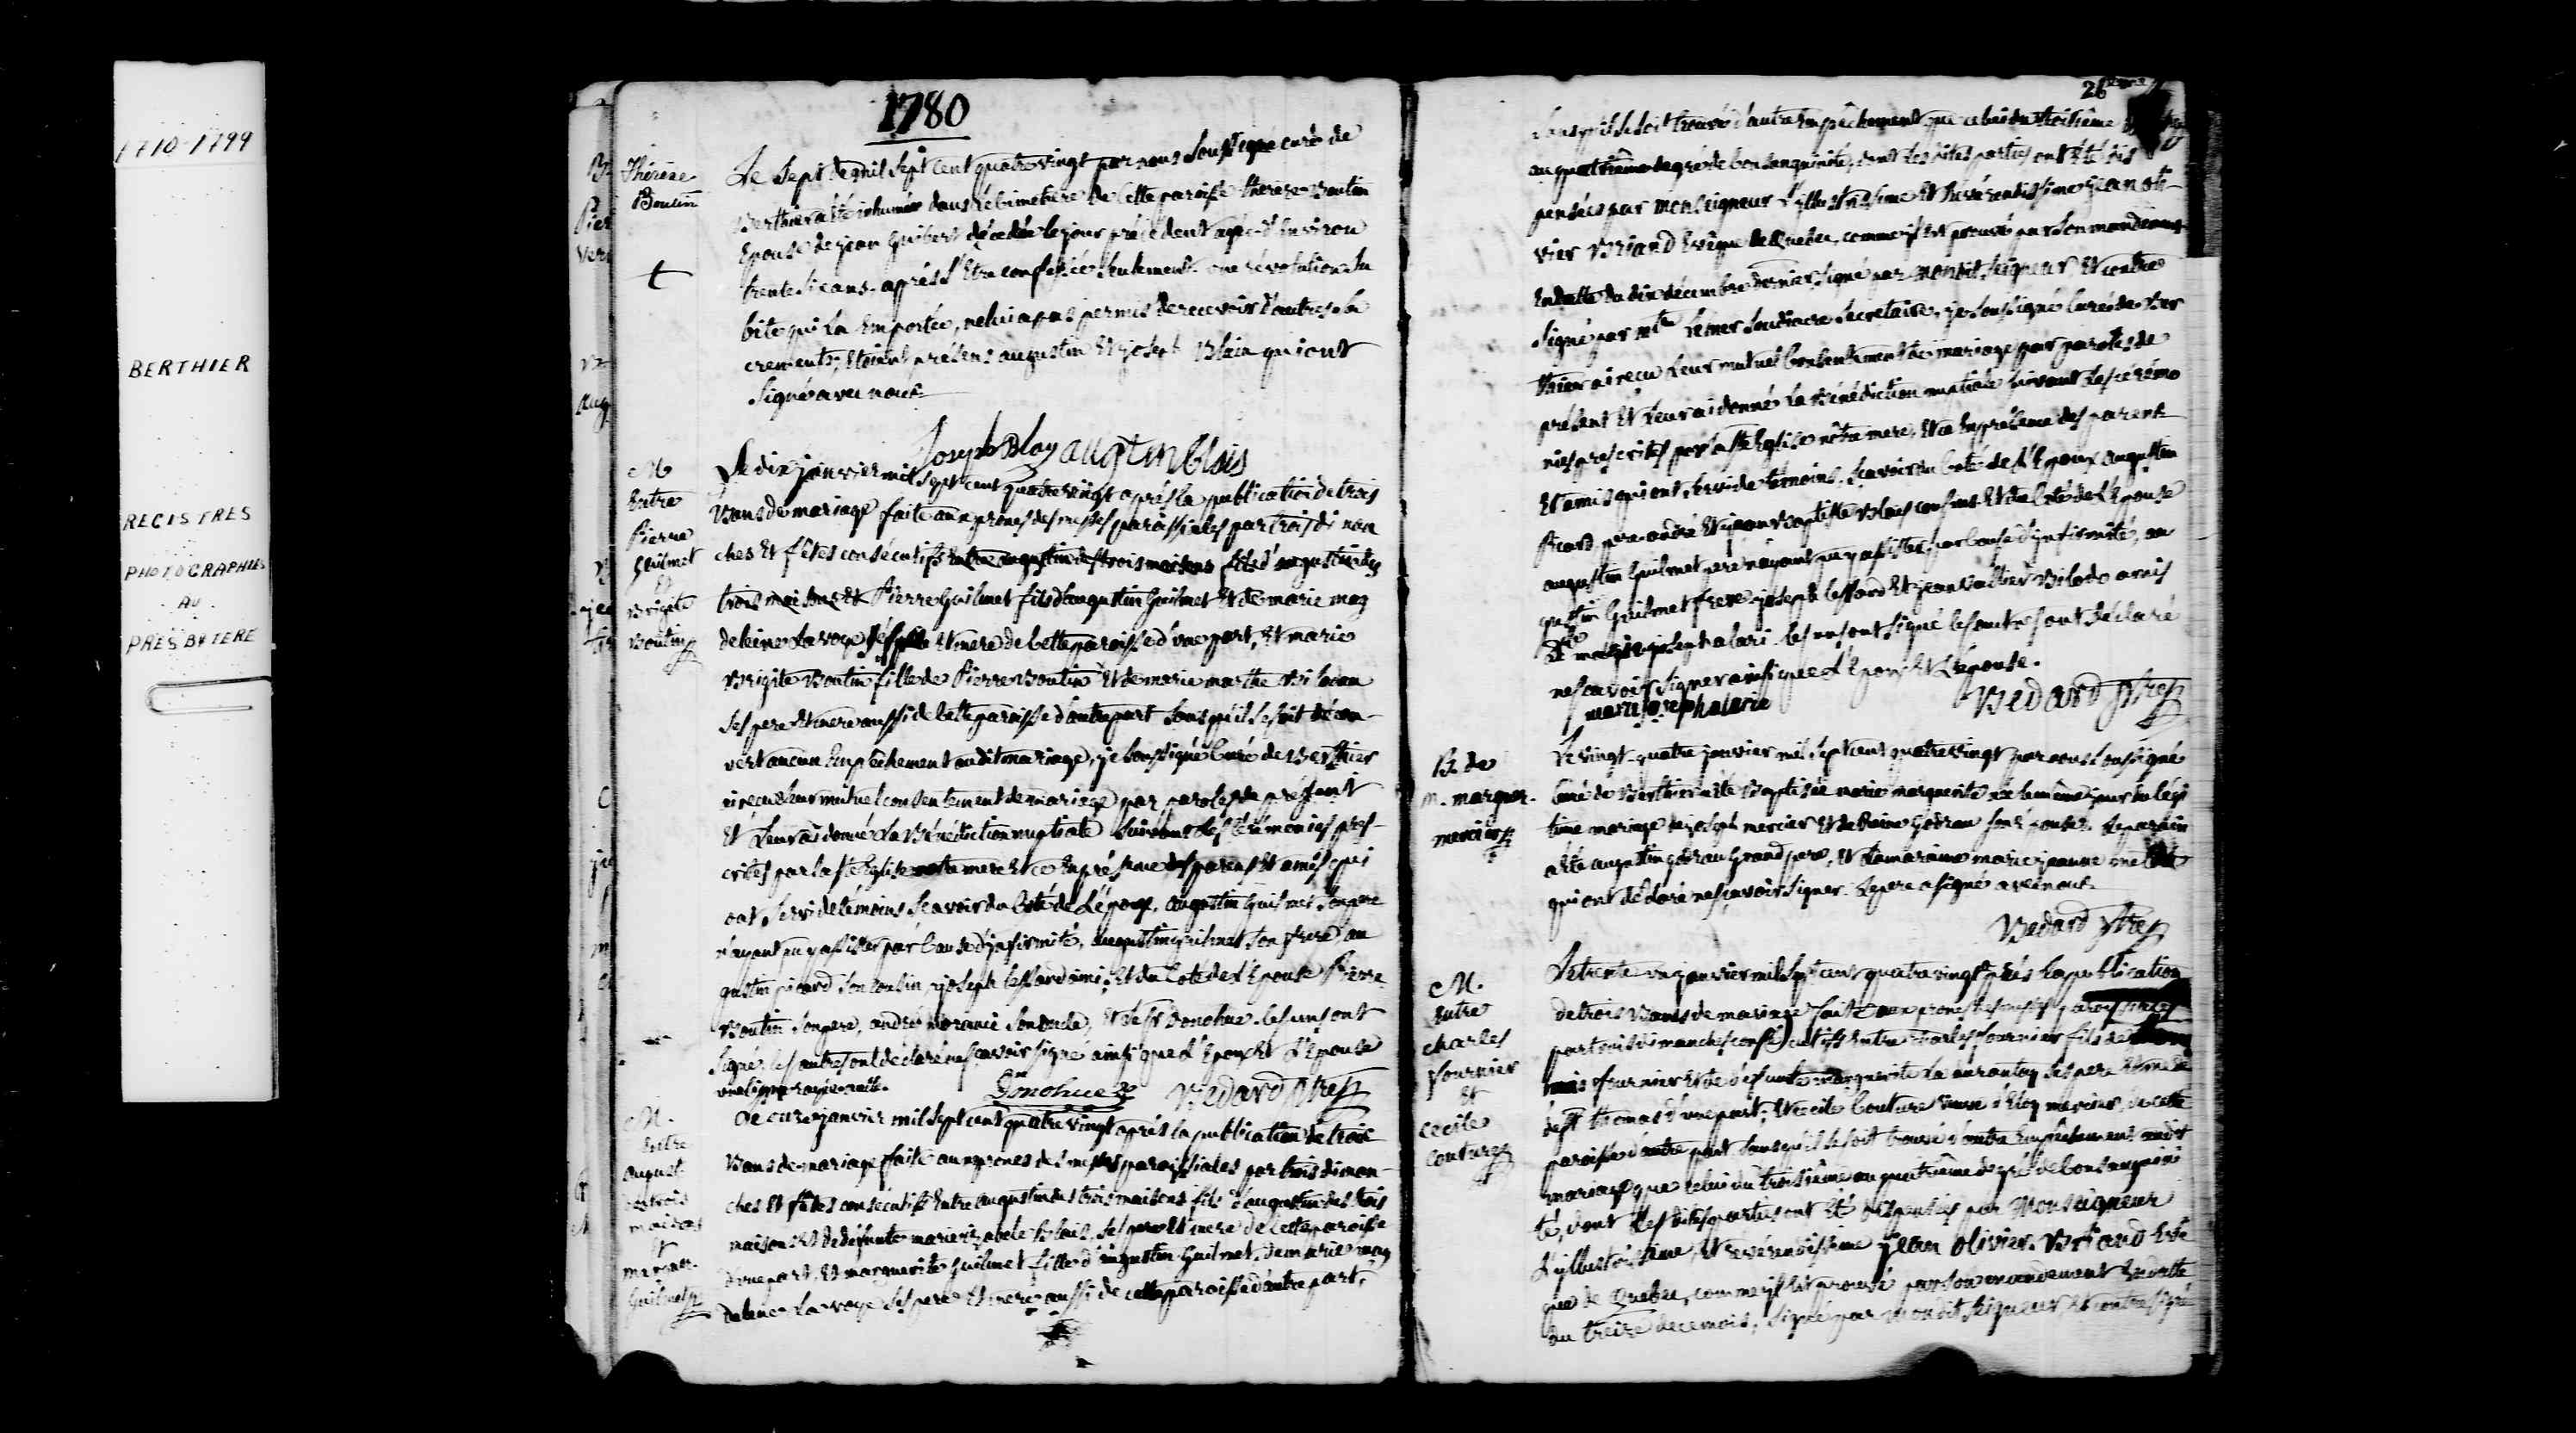 1710-1799
BERTHIER
REGISTRES
PHOTOGRAPHIES
AU
PRESBYTERE
1780
Thérèse
Boutin
Le Sept de mil Sept cent quatrevingt par nous Soussigné curé de
Berthier a été inhumée dans le cimetiere de cette paroisse therese Boutin
Epouse de jean Guibert décédée le jour précédent agée d'environ
trente Six ans. après s'Etre confessée Seulement. une révolution Su
bite qui la Emportée, ne lui a pas permis de recevoir d'autres Sa
crements; Etoient présens augustin Et joseph Blais qui ont
Signé avec nous
Joseph Blay augtin blais
M
Entre
Pierre
Guilmet
Et
Brigite
Boutin
Le dix janvier mil Sept cent quatrevingt après la publication de trois
Bans de mariage faite aux prones des messes paroissiales par trois diman
ches Et fêtes consécutifs entre augustin des trois maisons fils d'augustin des
trois maisons et Pierre Guilmet fils d'augustin Guilmet Et de marie mag
deleine Lavoye Ses pere Et mere de cette paroisse d'une part, Et marie
Brigite Boutin fille de Pierre Boutin Et de marie marthe Bilodeau
Ses pere Et mere aussi de cette paroisse d'autre part Sans qu'il Se Soit décou-
vert aucun Empêchement audit mariage, je Soussigné Curé de Berthier
ai reçu leur mutuel consentement de mariage par paroles de présent
Et Leur ai donné La Bénédiction nuptiale Suivant Les Cérémonies pres-
crites par La Ste Eglise notre mere Et ce En présence des parens Et amis qui
ont Servi de témoins Scavoir du Coté de L'époux, augustin Guilmet Son pere
n'ayant pu y assister par Cause d'infirmité, augustin guilmet Son frere, au
gustin picard Son cousin, joseph lessard ami; Et du Coté de L'Epouse Pierre
Boutin Son pere, andré morancé Son oncle, Et le Sr Donohue. les uns ont
Signé, les autres ont déclaré ne Scavoir Signé ainsi que L'Epoux Et L'Epouse
une ligne rayée nulle.
Donohue Bedard Ptre
M.
Entre
August
des trois
maisons
Et
Marguer.
Guilmet
Le onze janvier mil Sept cent quatre vingt après la publication de trois
Bans de mariage faite aux prones des messes paroissiales par trois diman-
ches Et fêtes consécutifs Entre augustin des trois maisons fils d'augustin des trois
maisons Et de défunte marie izabele Blais, Ses pere Et mere de cette paroisse
d'une part, Et marguerite Guilmet fille d'augustin Guilmet, de marie mag
delene Lavoye Ses pere Et mere aussi de cette paroisse d'autre part,
26
Sans qu'il Se Soit trouvé d'autre Empêchement que celui du troisième
au quatrième degré de consanguinité, dont Les dites parties ont Eté dis
pensées par Monseigneur L'illustrissime Et Révérendissime jean oli-
vier Briand Evêque de Quebec, comme il Est prouvé par Son mandement
En datte du dix décembre dernier, Signé par Mondit Seigneur, Et contre
Signé par Soudiacre Secretaire, je Soussigné Curé de Ber
thier ai reçu Leur mutuel Consentement de mariage par paroles de
présent Et Leur ai donné La Bénédiction nuptiale Suivant Les cérémo
nies prescrites par la Ste Eglise nôtre mere, Et ce En présence des parents
Et amis qui ont Servi de témoins, Scavoir du Coté de L'Epoux augustin
Picard, pere andré Et jean Baptiste Blais cousins. Et du Coté de L'Epouse
augustin Guilmet pere n'ayant pu y assister, par Cause d'infirmité, au
gustin Guilmet frere, joseph lessard Et jean vallier Bilodo amis
Et marie joseph alari. les uns ont Signé les autres ont déclaré
ne Scavoir Signer ainsi que L'Epoux Et L'épouse.
marie joseph alarie Bedard Ptre
B. de
m. marguer.
mercier
Le vingt-quatre janvier mil Sept cent quatre vingt par nous Soussigné
Curé de Berthier a été Baptisée marie marguerite née le même jour du légi
time mariage de joseph mercier Et de Reine Godrau Son Epouse. Le parain
a Eté augustin godrau Grand pere, Et La maraine marie jeanne
qui ont déclaré ne Scavoir Signer. Le pere a Signé avec nous.
Bedard Ptre
M.
Entre
Charles
Fournier
Et
Cecile
Couture
Le trente un janvier mil Sept cent quatre vingt après La publication
de trois Bans de mariage faite aux prones des messes paroissiales
par trois dimanches consécutifs Entre Charles fournier fils de
fournier Et de défunte marguerite Ses pere Et mere
de St thomas d'une part; Et Cecile Couture veuve d'Eloy mercier, de cette
paroisse d'autre part Sans qu'il Se Soit trouvé d'autre Empêchement audit
mariage que celui du troisième au quatrième degré de consanguini
té, dont Les dites parties ont Eté dispensées par Monseigneur
L'illustrissime, Et révérendissime jean Olivier Briand Evê
que de Quebec, comme il Est prouvé par Son mandement En datte
du treize de ce mois, Signé par Mondit Seigneur, Et contre Signé